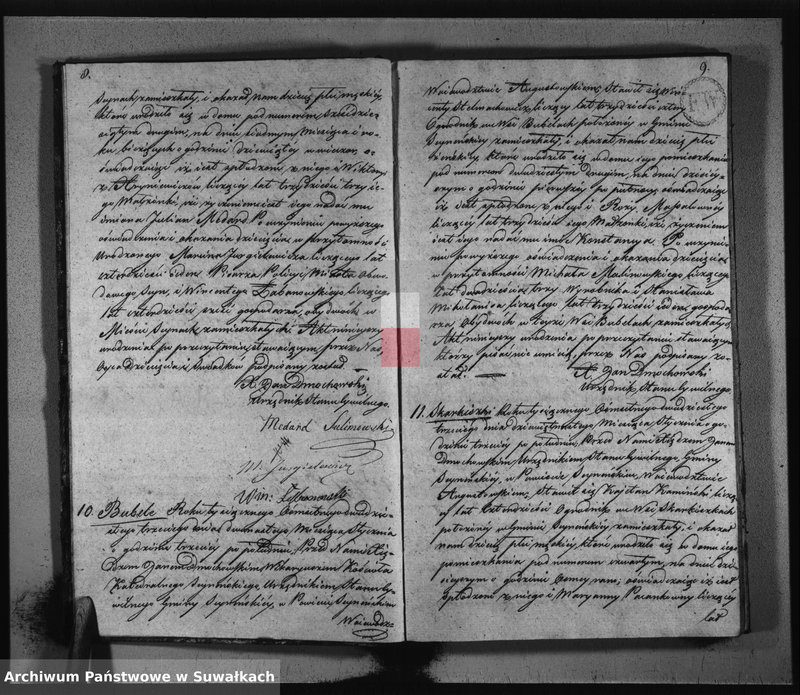 8.
Seynach zamieszkały, i okazał nam dziecię płci męskiej
które urodziło się w domu pod numerem
drugim, na dniu siódmym Miesiąca i ro-
ku bieżących o godzinie dziewiątej wieczor, o-
świadczając iż jest spłodzone z niego i Wiktoryi
z liczącej lat trzydzieści trzy je-
go Małżonki, iż życzeniem jest jego nadać mu
imiona Julian Medard. Po uczynieniu powyższego
oświadczenia i okazania dziecięcia w przytomności
Urodzonego Marcina liczącego lat
czterdzieści siedem Pisarza Policyi Miasta Obwo-
dowego Seyn, i Wincentego liczącego
lat czterdzieści sześć gospodarza, obydwóch w
Mieście Seynach zamieszkałych. Akt niniejszy
urodzenia po przeczytaniu stawającym, przez Nas
Ojca dziecięcia i świadków podpisany został.
X. Jan Dmochowski
Urzędnik Stanu Cywilnego.
Medard Sulimowski
10. Bubele Roku tysiącznego Ośmsetnego dwudzie-
stego trzeciego dnia dwunastego Miesiąca Stycznia
o godzinie trzeciej po południu, Przed Nami Xię-
dzem Janem Dmochowskim Wikaryuszem Kościoła
Katedralnego Seynińskiego Urzędnikiem Stanu Cy-
wilnego Gminy Seynińskiej, w Powiecie Seynińskim
Wojewódz-
9.
Wojewodztwie Augustowskiem, Stawił się Win-
centy Stelmachowicz liczący lat trzydzieści cztery
Ogrodnik we Wsi Bubelach położonej w Gminie
Seynińskiej zamieszkały, i okazał nam dziecię płci
żeńskiej które urodziło się w domu jego pomieszkania
pod numerem dwudziestym drugim, na dniu dzisiej-
szym o godzinie pierwszej po północy, oświadczając
iż jest spłodzone z niego i Rozy
liczącej lat trzydzieści jego Małżonki, iż życzeniem
jest jego nadać mu imie Konstancya. Po uczynie-
niu powyższego oświadczenia i okazania dziecięcia
w przytomności Michała Malinowskiego liczącego
lat dwadzieścia trzy Wyrobnika i Stanisława
liczącego lat trzydzieści siedm gospoda-
rza Obydwóch w tejże Wsi Bubelach zamieszkałych
Akt niniejszy urodzenia po przeczytaniu stawającym
którzy pisać nie umieją, przez Nas podpisany zo-
stał.
X. Jan Dmochowski
Urzędnik Stanu Cywilnego.
11. Skarkiszki Roku tysiącznego Ośmsetnego dwudziestego
trzeciego dnia dziewiętnastego Miesiąca Stycznia o go-
dzinie trzeciej po południu, Przed Nami Xiędzem Janem
Dmochowskim Urzędnikiem Stanu Cywilnego Gminy
Seynińskiej, w Powiecie Seynińskim, Wojewodztwie
Augustowskiem, Stawił się Kajetan Kamiński liczą-
cy lat czterdzieści Ogrodnik we Wsi Skarkiszkach
położonej w Gminie Seynińskiej zamieszkały, i okazał
nam dziecię płci męskiej, które urodziło się w domu jego
pomieszkania pod numerem czwartym, na dniu dzi-
siejszym o godzinie ósmej rano, oświadczając iż jest
spłodzone z niego i Maryanny liczącej
lat
Archiwum Państwowe w Suwałkach